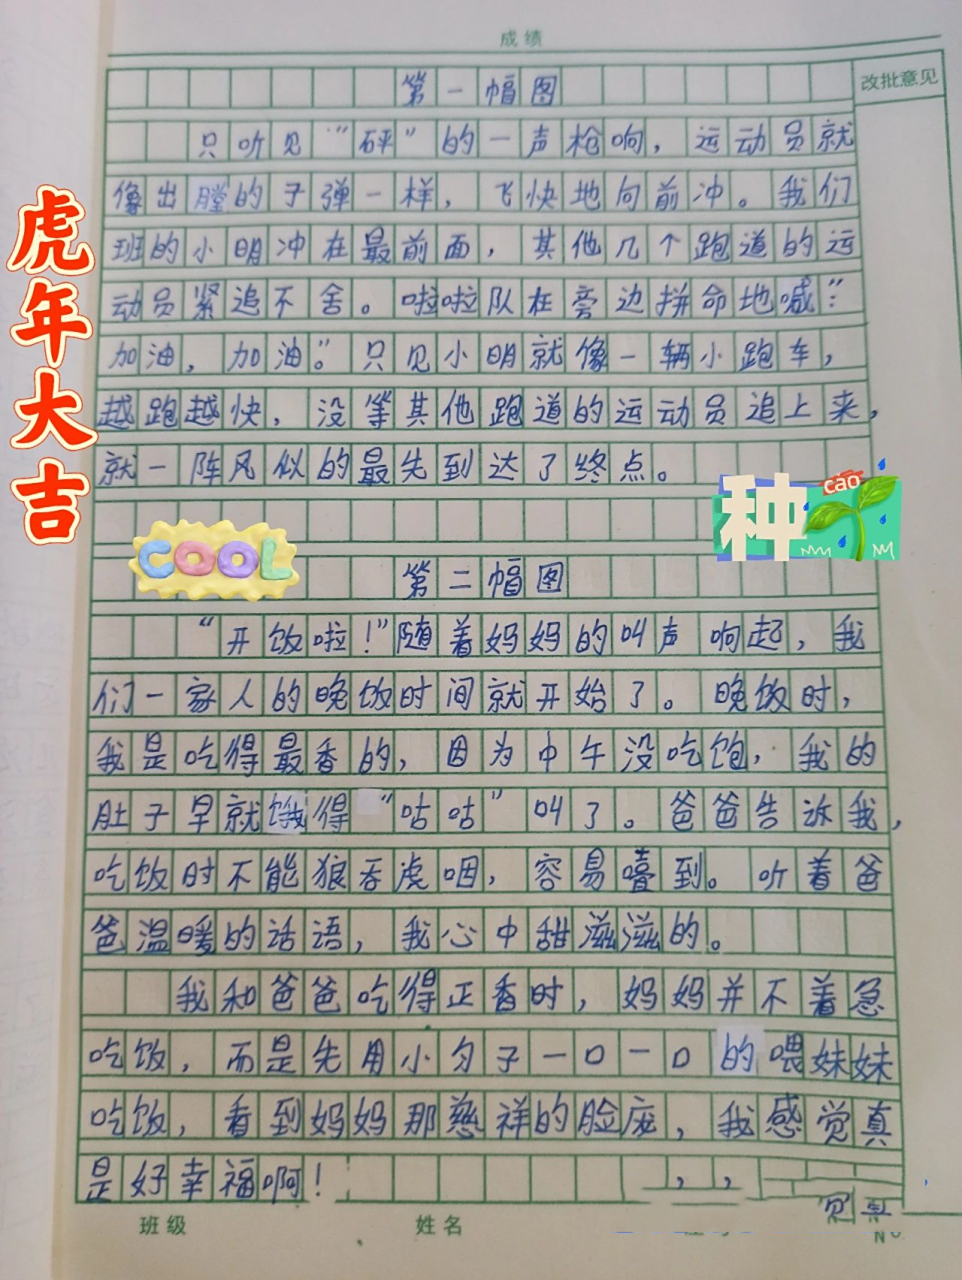 成绩
改批意见
第一幅图
只听见“砰”的一声枪响，运动员就
像出膛的子弹一样，飞快地向前冲。我们
班的小明冲在最前面，其他几个跑道的运
动员紧追不舍。啦啦队在旁边拼命地喊：“
加油，加油。”只见小明就像一辆小跑车，
越跑越快，没等其他跑道的运动员追上来，
就一阵风似的最先到达了终点。
虎年大吉
种
cǎo
COOL
第二幅图
“开饭啦！”随着妈妈的叫声响起，我
们一家人的晚饭时间就开始了。晚饭时，
我是吃得最香的，因为中午没吃饱，我的
肚子早就饿得“咕咕”叫了。爸爸告诉我，
吃饭时不能狼吞虎咽，容易噎到。听着爸
爸温暖的话语，我心中甜滋滋的。
我和爸爸吃得正香时，妈妈并不着急
吃饭，而是先用小勺子一口一口的喂妹妹
吃饭，看到妈妈那慈祥的脸庞，我感觉真
是好幸福啊！
班级
姓名